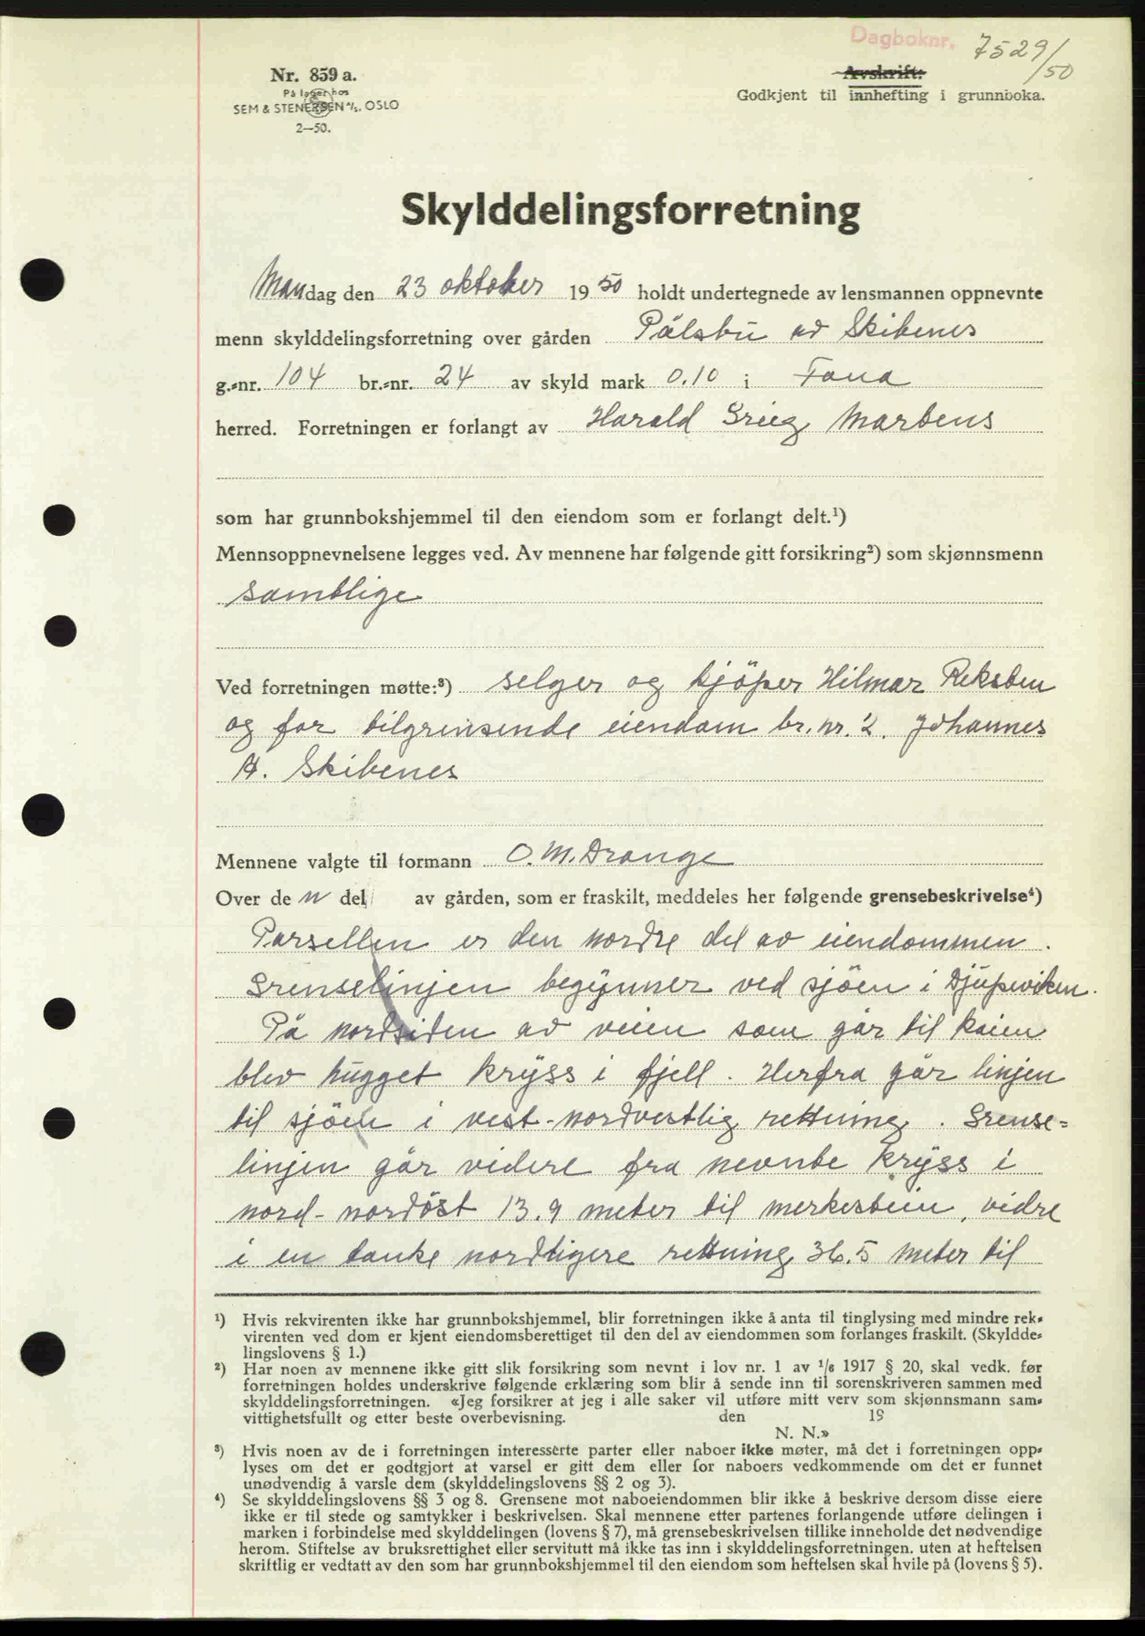 Dagboknr. 7529/50
Nr. 859 a.
På lager hos
SEM & STENERSEN A/S. OSLO
2—50.
Avskrift:
Godkjent til innhefting i grunnboka.
Skylddelingsforretning
Mandag den 23 oktober 1950 holdt undertegnede av lensmannen oppnevnte
menn skylddelingsforretning over gården Pålsbu av Skibenes
g.-nr. 104 br.-nr. 24 av skyld mark 0.10 i Fana
herred. Forretningen er forlangt av Harald Grieg Martens
som har grunnbokshjemmel til den eiendom som er forlangt delt.¹)
Mennsoppnevnelsene legges ved. Av mennene har følgende gitt forsikring²) som skjønnsmenn
samtlige
Ved forretningen møtte:³) selger og kjöper Hilmar Reksten
og for tilgrensende eiendom br. nr. 2. Johannes
A. Skibenes
Mennene valgte til formann O. M. Drange
Over de n del av gården, som er fraskilt, meddeles her følgende grensebeskrivelse⁴)
Parsellen er den nordre del av eiendommen.
Grenselinjen begynner ved sjöen i Djupeviken.
På nordsiden av veien som går til kaien
blev hugget kryss i fjell. Herfra går linjen
til sjöen i vest-nordvestlig rettning. Grense=
linjen går videre fra nevnte kryss i
nord-nordöst 13.9 meter til merkestein, vidre
i en tanke nordligere rettning 36.5 meter til
¹) Hvis rekvirenten ikke har grunnbokshjemmel, blir forretningen ikke å anta til tinglysing med mindre rek-
virenten ved dom er kjent eiendomsberettiget til den del av eiendommen som forlanges fraskilt. (Skyldde-
lingslovens § 1.)
²) Har noen av mennene ikke gitt slik forsikring som nevnt i lov nr. 1 av 1/6 1917 § 20, skal vedk. før
forretningen holdes underskrive følgende erklæring som blir å sende inn til sorenskriveren sammen med
skylddelingsforretningen. «Jeg forsikrer at jeg i alle saker vil utføre mitt verv som skjønnsmann sam-
vittighetsfullt og etter beste overbevisning. den 19
N. N.»
³) Hvis noen av de i forretningen interesserte parter eller naboer ikke møter, må det i forretningen opp-
lyses om det er godtgjort at varsel er gitt dem eller for naboers vedkommende om det er funnet
unødvendig å varsle dem (skylddelingslovens §§ 2 og 3).
⁴) Se skylddelingslovens §§ 3 og 8. Grensene mot naboeiendommen blir ikke å beskrive dersom disse eiere
ikke er til stede og samtykker i beskrivelsen. Skal mennene etter partenes forlangende utføre delingen i
marken i forbindelse med skylddelingen (lovens § 7), må grensebeskrivelsen tillike inneholde det nødvendige
herom. Stiftelse av bruksrettighet eller servitutt må ikke tas inn i skylddelingsforretningen. uten at heftelsen
skriftlig er vedtatt av den som har grunnbokshjemmel til den eiendom som heftelsen skal hvile på (lovens § 5).